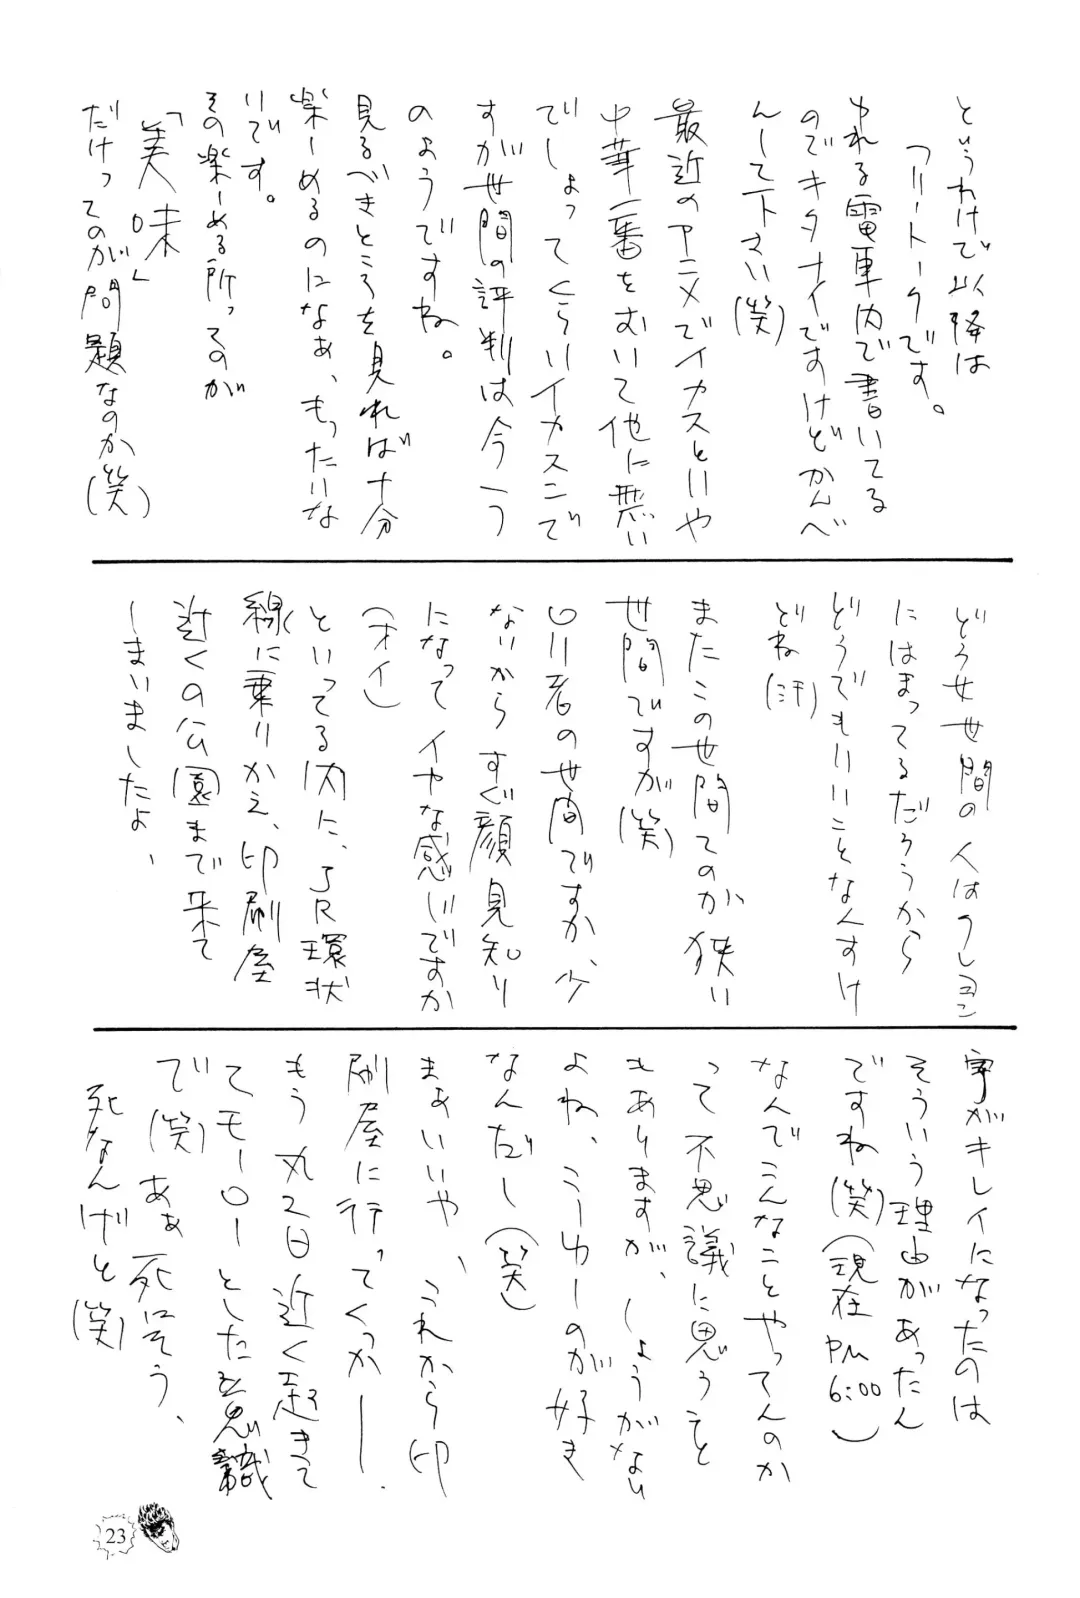 というわけで以降は
フリートークです。
ゆれる電車内で書いてる
のでキタナイですけどかんべ
んして下さい(笑)
最近のアニメでイカスといや
中華一番をおいて他に無い
でしょってくらいイカスンで
すが世間の評判は今一つ
のようですね。
見るべきところを見れば十分
楽しめるのになぁ、もったいな
いです。
その楽しめる所ってのが
「美味」
だけってのが問題なのか(笑)
どうせ世間の人はクレヨン
にはまってるだろうから
どうでもいいことなんすけ
どね(汗)
またこの世間てのが狭い
世間ですが(笑)
ロリ者の世間ですか、少
ないからすぐ顔見知り
になってイヤな感じですか
(オイ)
といってる内に、JR環状
線に乗りかえ、印刷屋
近くの公園まで来て
しまいましたよ、
字がキレイになったのは
そういう理由があったん
ですね(笑)(現在PM6:00)
なんでこんなことやってんのか
って不思議に思うこと
もありますが、しょうがない
よね、こーゆーのが好き
なんだし(笑)
まぁいいや、これから印
刷屋に行ってくっかー。
もう丸2日近く起きて
てモーローとした意識
で(笑)あぁ死にそう、
死なんけど(笑)
23